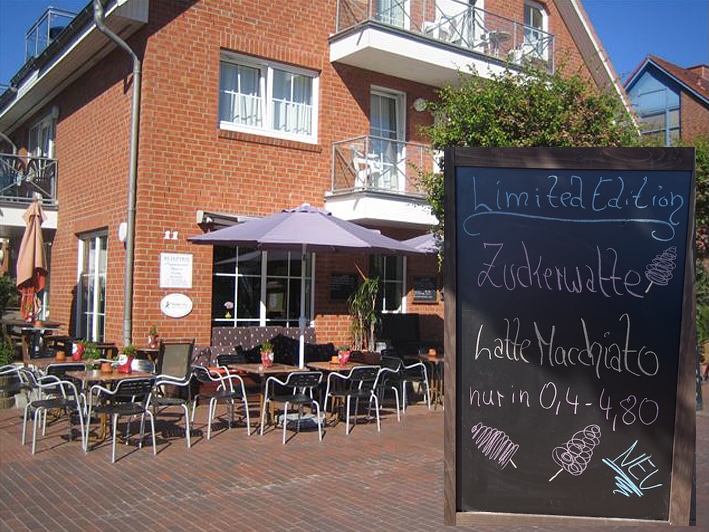 Limited Edition
Zuckerwatte
Latte Macchiato
nur in 0,4 - 4,80
NEU
11